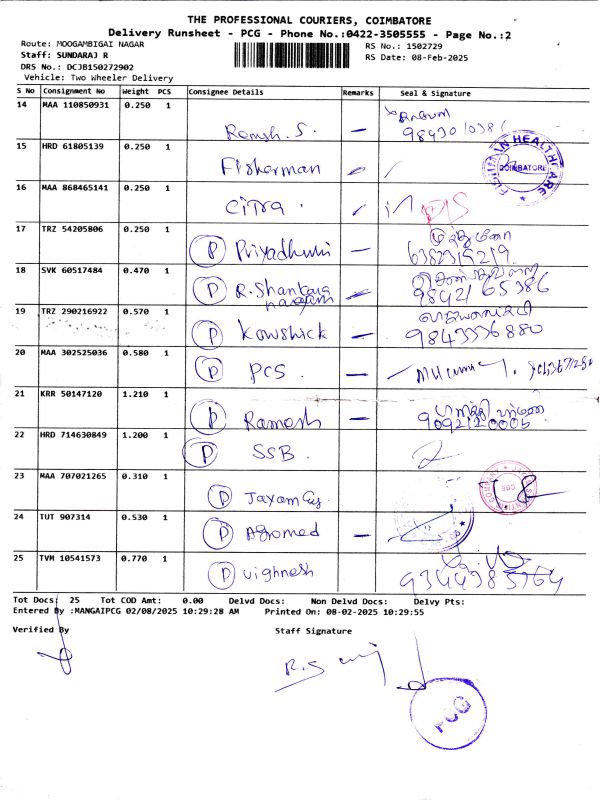 THE PROFESSIONAL COURIERS, COIMBATORE
Delivery Runsheet - PCG - Phone No.:0422-3505555 - Page No.:2
Route: MOOGAMBIGAI NAGAR
RS No.: 1502729
Staff: SUNDARAJ R
RS Date: 08-Feb-2025
DRS No.: DCJB150272902
Vehicle: Two Wheeler Delivery
S No Consignment No Weight PCS Consignee Details Remarks Seal & Signature
14 MAA 110850931 0.250 1
Ramsh.S. —
15 HRD 61805139 0.250 1
Fisherman
HEALTHCARE
COIMBATORE
16 MAA 868465141 0.250 1
CITRA
17 TRZ 54205806 0.250 1
P —
18 SVK 60517484 0.470 1
P R.Shankara
98421 65386
19 TRZ 290216922 0.570 1
P Kowshick — 9843336880
20 MAA 302525036 0.580 1
P PCS. —
21 KRR 50147120 1.210 1
P Ramesh —
22 HRD 714630849 1.200 1
P SSB.
23 MAA 707021265 0.310 1
P
24 TUT 907314 0.530 1
P Agromed —
25 TVM 10541573 0.770 1
P vighnesh
Tot Docs: 25 Tot COD Amt: 0.00 Delvd Docs: Non Delvd Docs: Delvy Pts:
Entered By :MANGAIPCG 02/08/2025 10:29:28 AM Printed On: 08-02-2025 10:29:55
Verified By Staff Signature
PCG